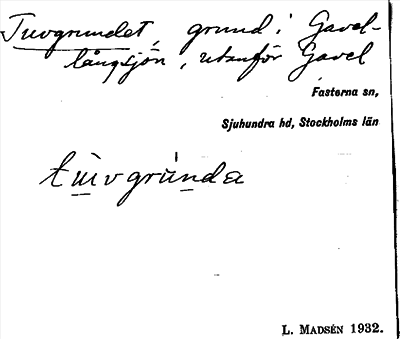 Tuvgrundet, grund i Gavel-
långsjön, utanför Gavel
Fasterna sn,
Sjuhundra hd, Stockholms län
tuvgrunda
L. MADSÉN 1932.